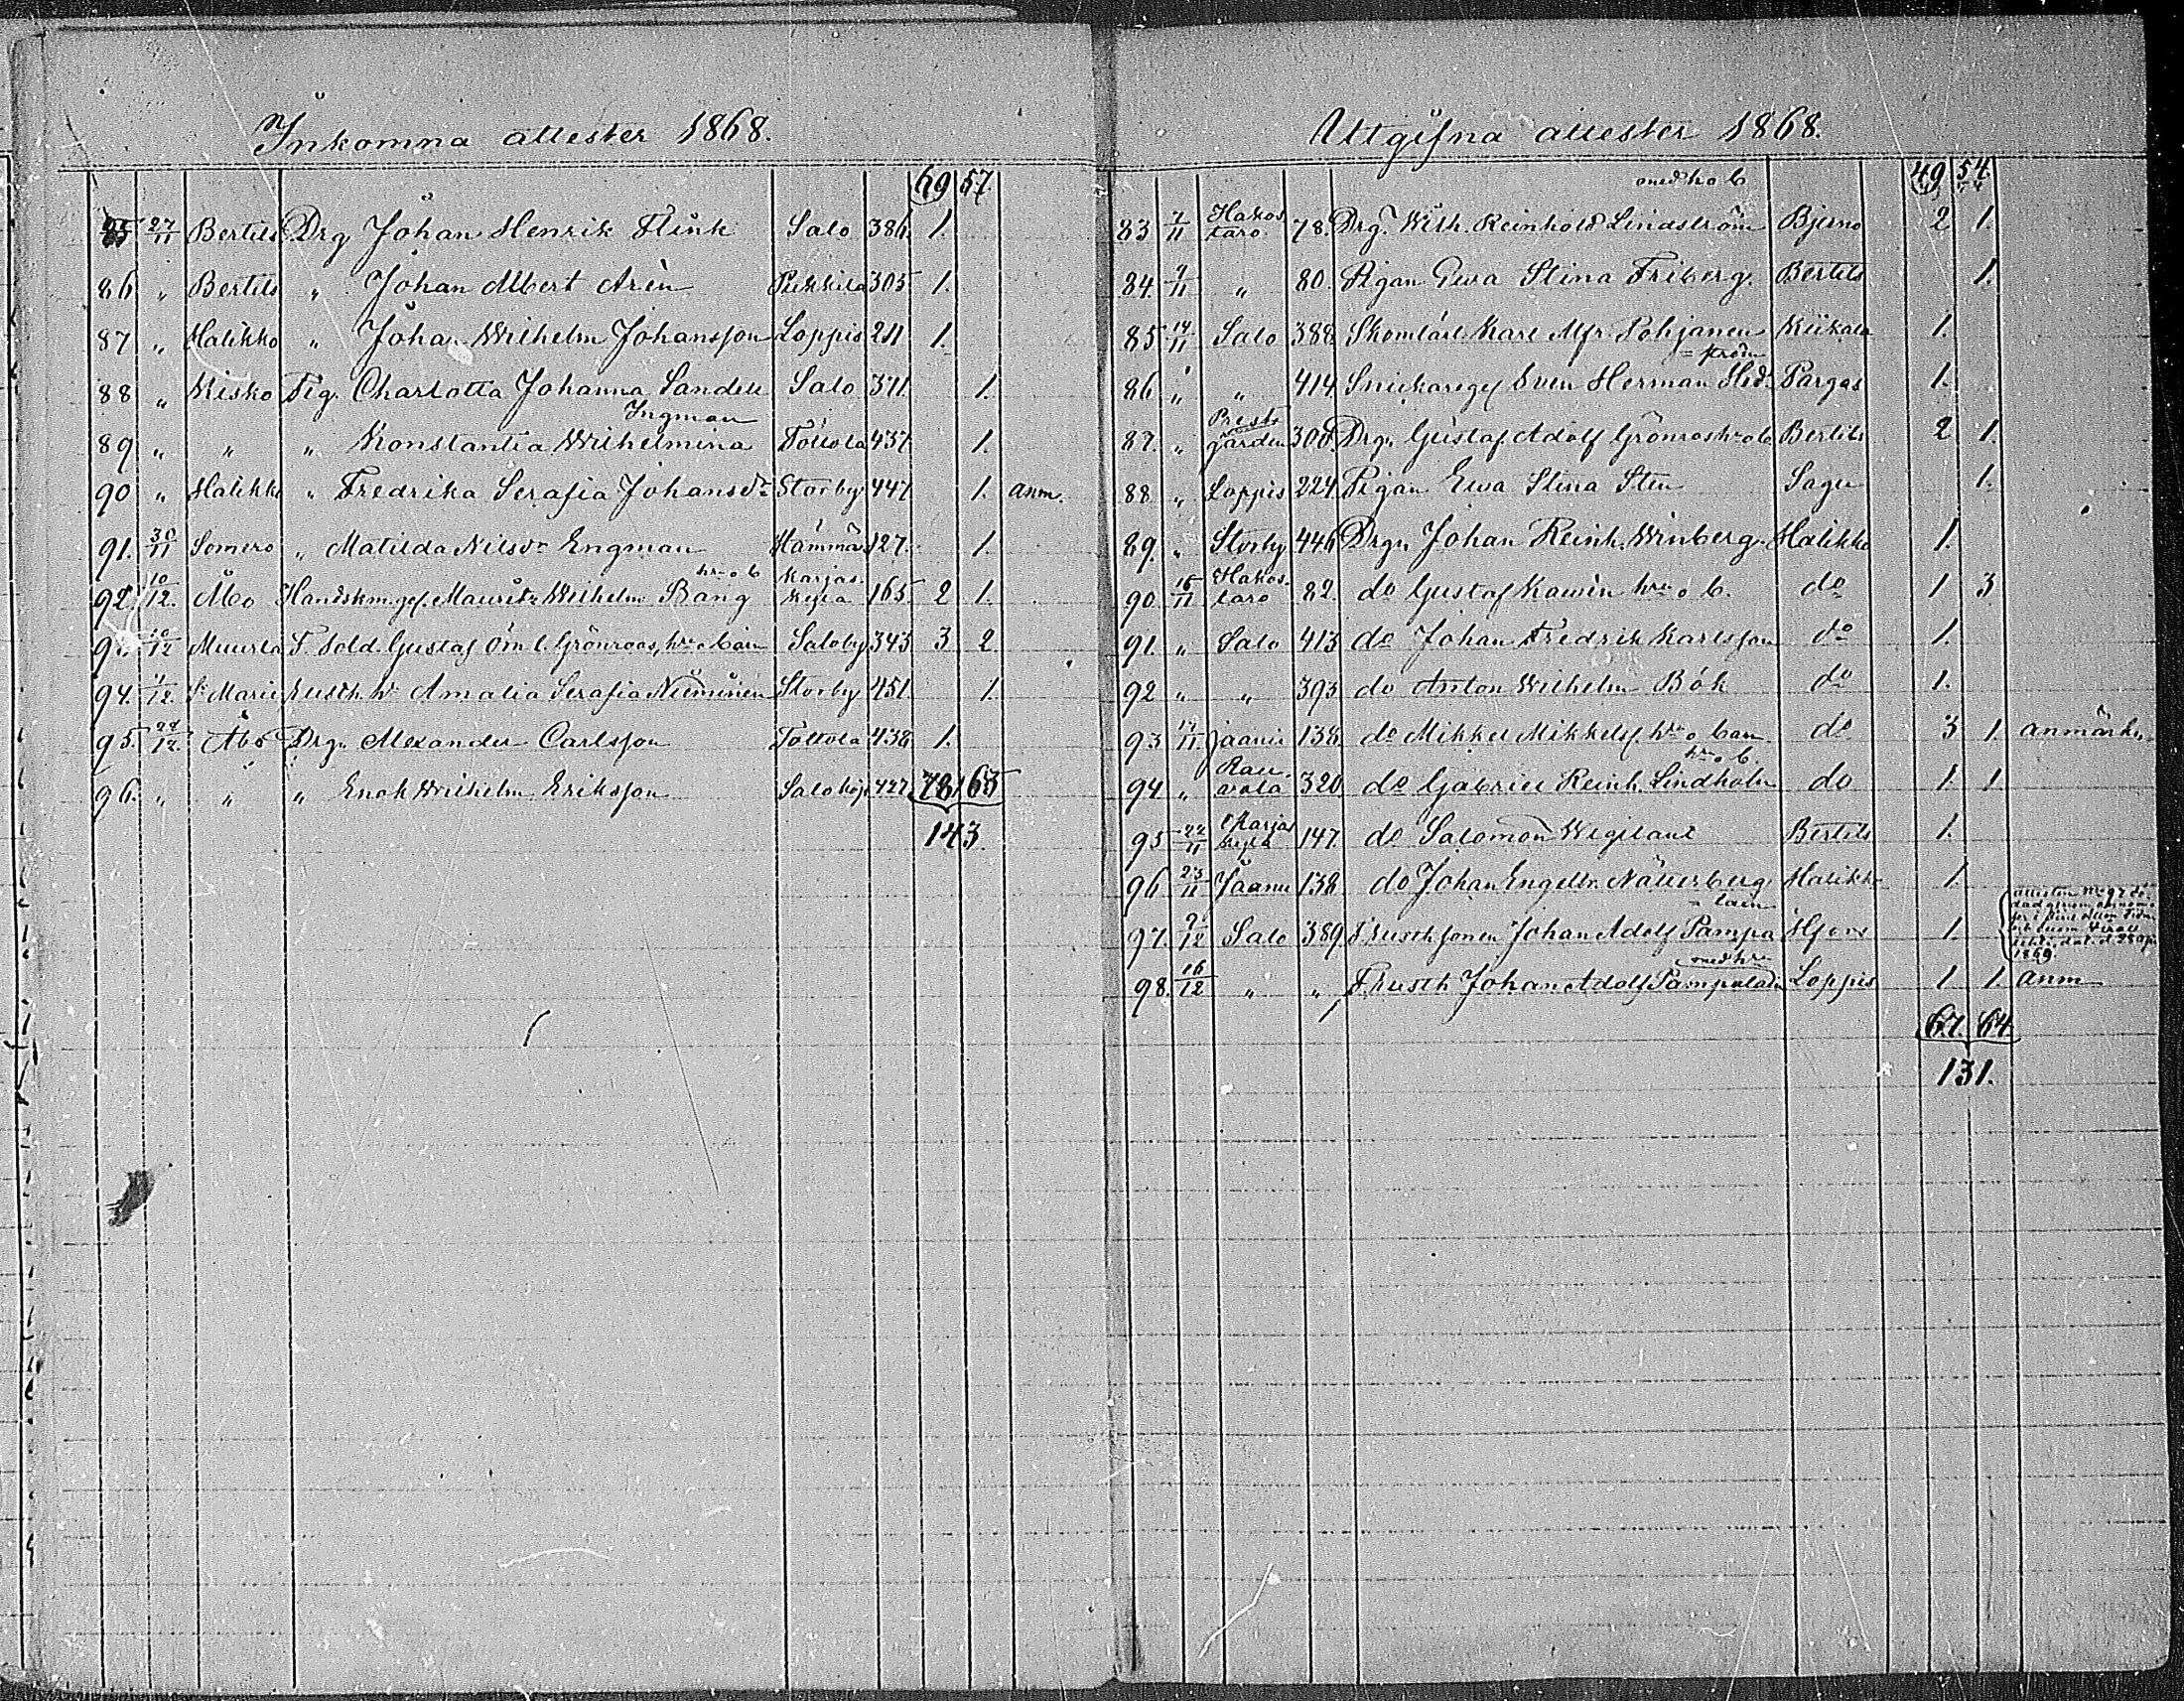 Inkomna attester 1868.
69 57.
85 27/11 Bertils Drg Johan Henrik Flink Salo 386 1.
86 " Bertils " Johan Albert Arèn Pukkila 305 1.
87 " Halikko " Johan Wilhelm Johansson Loppis 211 1.
88 " Kisko Pig. Charlotta Johanna Sandell Salo 371 1.
Ingman
89 " " " Konstantia Wilhelmina Tottola 437 1.
90 " Halikko " Fredrika Serafia Johansdr Storby 447 1. anm.
91. 30/11 Somero " Matilda Nilsdr Engman Hämmäs 127. 1.
92 10/12. Åbo Handskm.ges. Mauritz Wilhelm Bang hru o b Karjaskylä 165 2 1.
10/12 Muurla F. Sold. Gustaf Öm l. Grönroos, hru o barn Saloby 343 3 2.
94. 11/12. St Marie Amalia Serafia Nieminen Storby 451. 1.
95. 12. Åbo Drgn Alexander Carlsson Tottola 438 1.
96. " " " Enok Wilhelm Eriksson Salo köp 427 78 65
143.
Utgifna attester 1868.
49 54.
med h o b
83 7/11 Hakostaro 78. Drg. Wilh. Reinhold Lindström Bjerno 2 1.
84. 9/11 " 80. Pigan Ewa Stina Friberg. Bertils 1.
85 14/11 Salo 388 Skomlärl. Karl Alfr. Pohjanen Kiikala 1.
86 " " 414 Snickareges Sven Herman Pargas 1.
87. " Prestgården 308. Drg. Gustaf Adolf Grönros hru o b Bertils 2 1.
88 " Loppis 224 Pigan Ewa Stina Sten Sagu 1.
89. " Storby 446 Drgn. Johan Reinh. Winberg Halikko 1.
90. 16/11 Hakostaro 82. do Gustaf Kawén hru o b. do 1 3
91. " Salo 413 do Johan Fredrik Karlsson do 1.
92 " " 393 do Anton Wilhelm Bök do 1.
93 11 Jaanii 138. do Mikkel Mikkelss. hru o barn do 3 1. anmärkn.
hru o b.
94 " 320 do Gabriel Reinh. Lindholm do 1. 1
95 22/11 Karjaskylä 147. do Salomon Wigilant Bertils 1.
96 23/11 Jaanii 138 do Johan Engelbr. Näuerberg Halikko 1.
97. 9/12 Salo 389 Johan Adolf Pampa 1.
1869.
98. 16/12 " " Johan Adolf Pampulain med hru Loppis 1 1. anm
67. 64.
131.